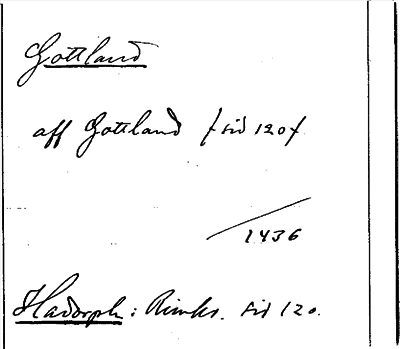 Gottland
aff Gottland /sid 120/
1436
Hadorph: Rimkr. sid 120.